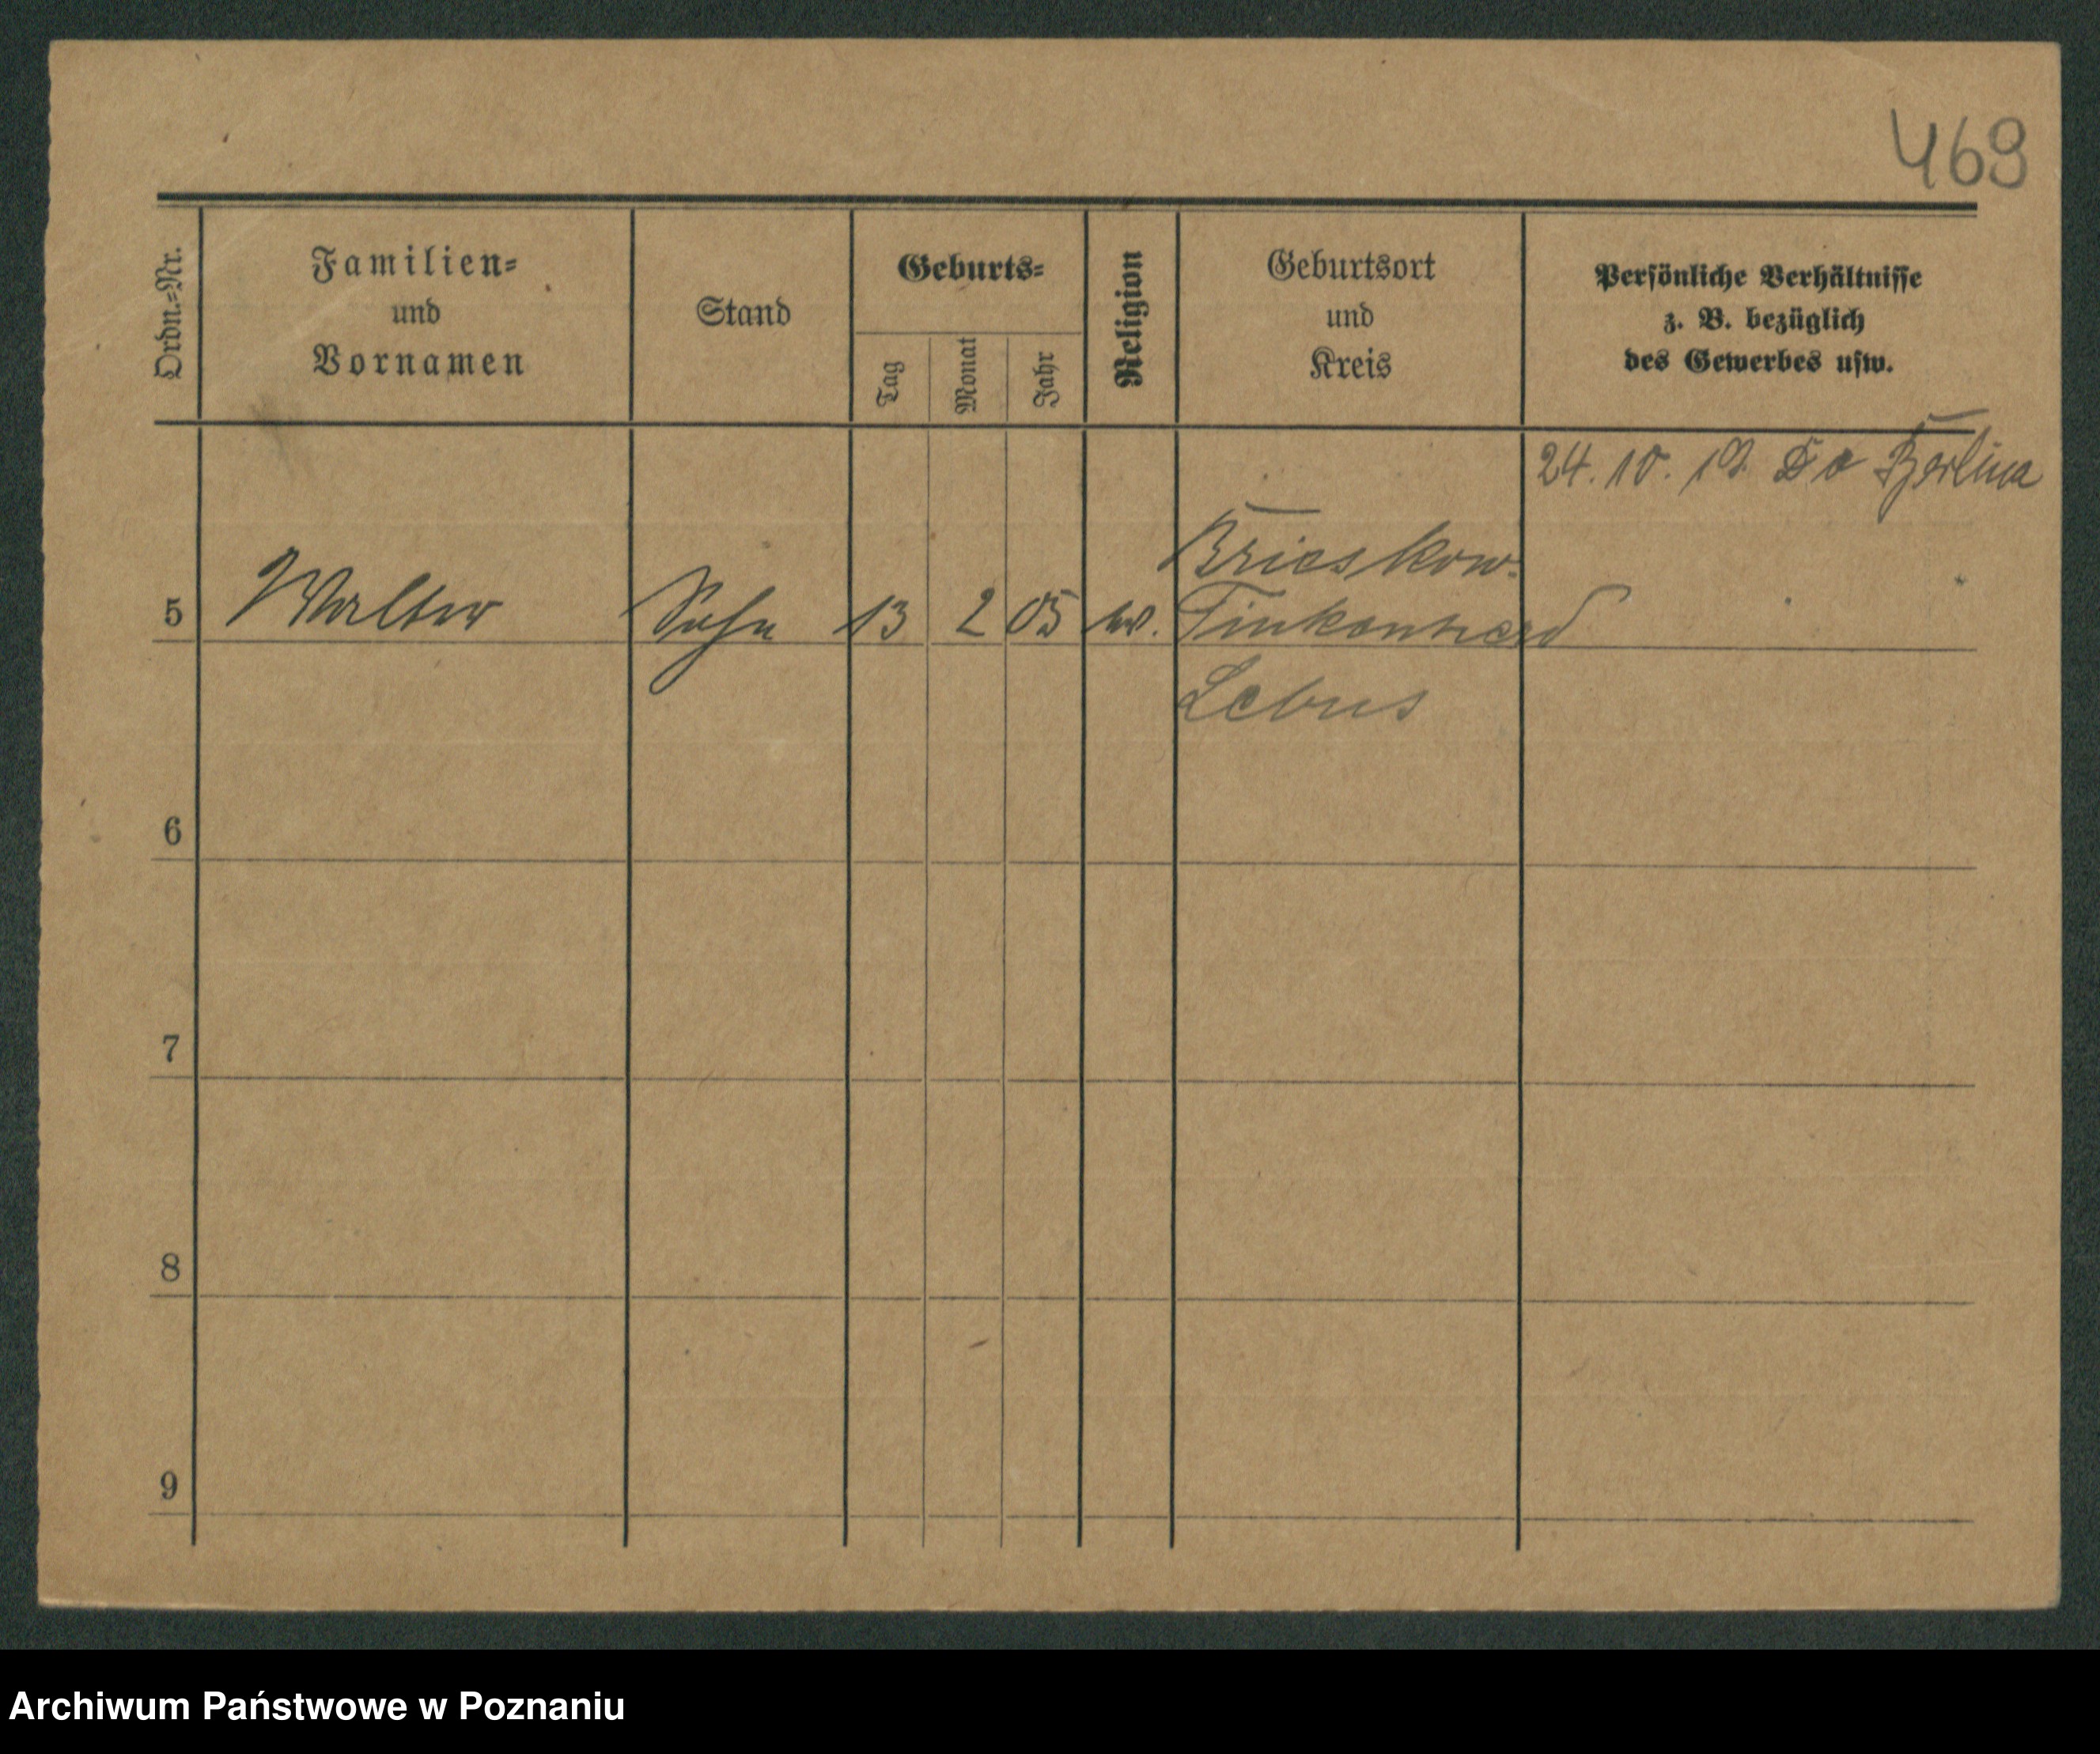 469
Ordn.-Nr.
Familien-
und
Vornamen
Stand
Geburts-
Tag
Monat
Jahr
Religion
Geburtsort
und
Kreis
Persönliche Verhältnisse
z. B. bezüglich
des Gewerbes usw.
24. 10. 19. Do Berlina
Brieskow-
5 Walter Sohn 13 2 05 Finkenheerd
Lebus
6
7
8
9
Archiwum Państwowe w Poznaniu